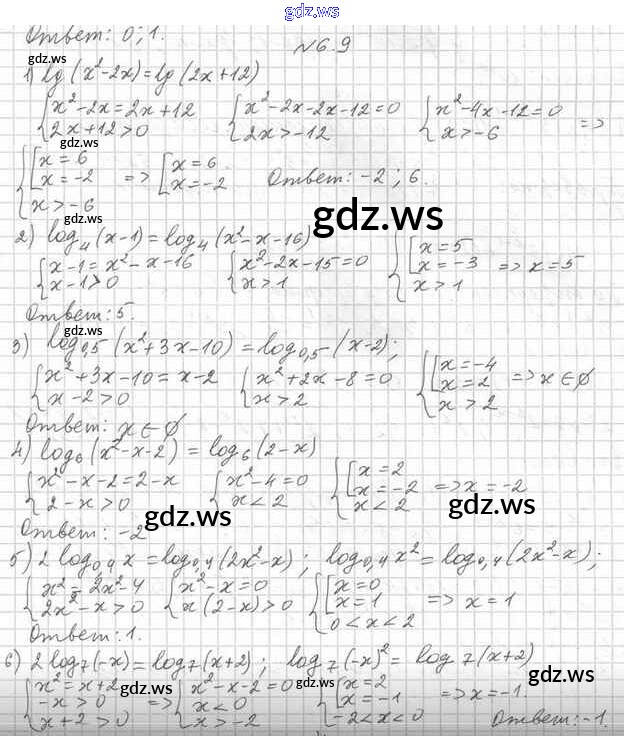 gdz.ws
Ответ: 0; 1.
gdz.ws
№6.9
1) lg (x²-2x) = lg (2x+12)
{x²-2x=2x+12 {x²-2x-2x-12=0 {x²-4x-12=0 =>
2x+12>0 2x>-12 x>-6
gdz.ws
{[x=6 => [x=6
x=-2 x=-2 Ответ: -2; 6.
x>-6
gdz.ws
gdz.ws
2) log₄(x-1) = log₄(x²-x-16)
{x-1=x²-x-16 {x²-2x-15=0 {[x=5
x-1>0 x>1 x=-3 => x=5
x>1
Ответ: 5.
gdz.ws
3) log₀,₅(x²+3x-10) = log₀,₅(x-2);
{x²+3x-10=x-2 {x²+2x-8=0 {[x=-4
x-2>0 x>2 x=2 => x∈∅
x>2
Ответ: x∈∅
4) log₆(x²-x-2) = log₆(2-x)
{x²-x-2=2-x {x²-4=0 {[x=2
2-x>0 x<2 x=-2 => x=-2
x<2
Ответ: -2
gdz.ws
gdz.ws
5) 2log₀,₄x = log₀,₄(2x²-x); log₀,₄x² = log₀,₄(2x²-x);
{x²=2x²-4 {x²-x=0 {[x=0
2x²-x>0 x(2-x)>0 x=1 => x=1
0<x<2
Ответ: 1.
6) 2log₇(-x) = log₇(x+2); log₇(-x)² = log₇(x+2)
gdz.ws
gdz.ws
gdz.ws
{x²=x+2 => {x²-x-2=0 {[x=2
-x>0 x<0 x=-1 => x=-1.
x+2>0 x>-2 -2<x<0 Ответ: -1.